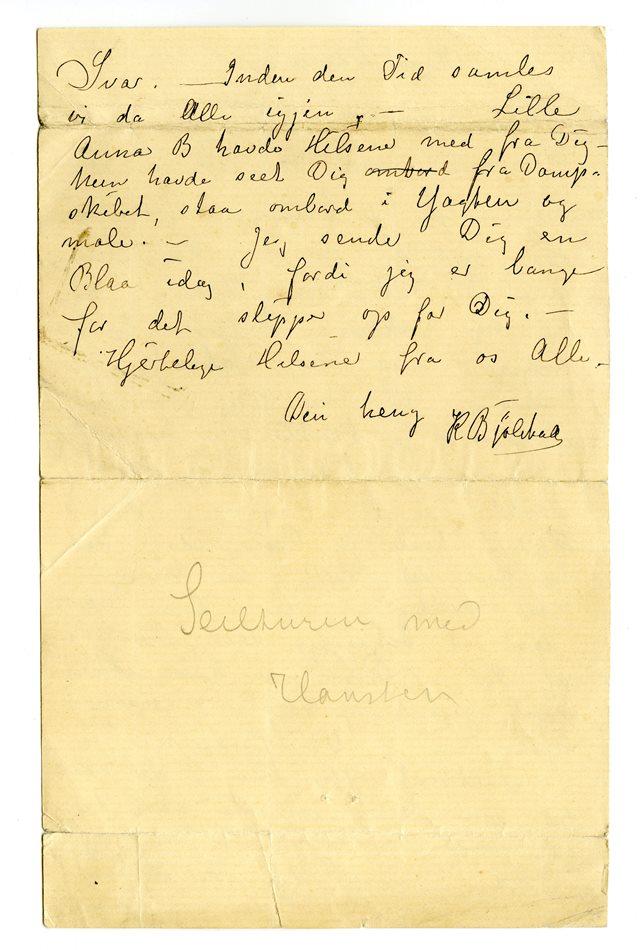 Svar. — Inden den Tid samles
vi da Alle igjen. — Lille
Anna B havde Hilsene med fra Dig —
hun havde seet Dig ombord fra Damp-
skibet, staa ombord i Yagten og
male. — Jeg sende Dig en
Blaa idag, fordi jeg er bange
for det slipper op for Dig. —
Hjertelige Hilsener fra os Alle. —
Din heng K Bjölstad
Seilturen med
Hansten